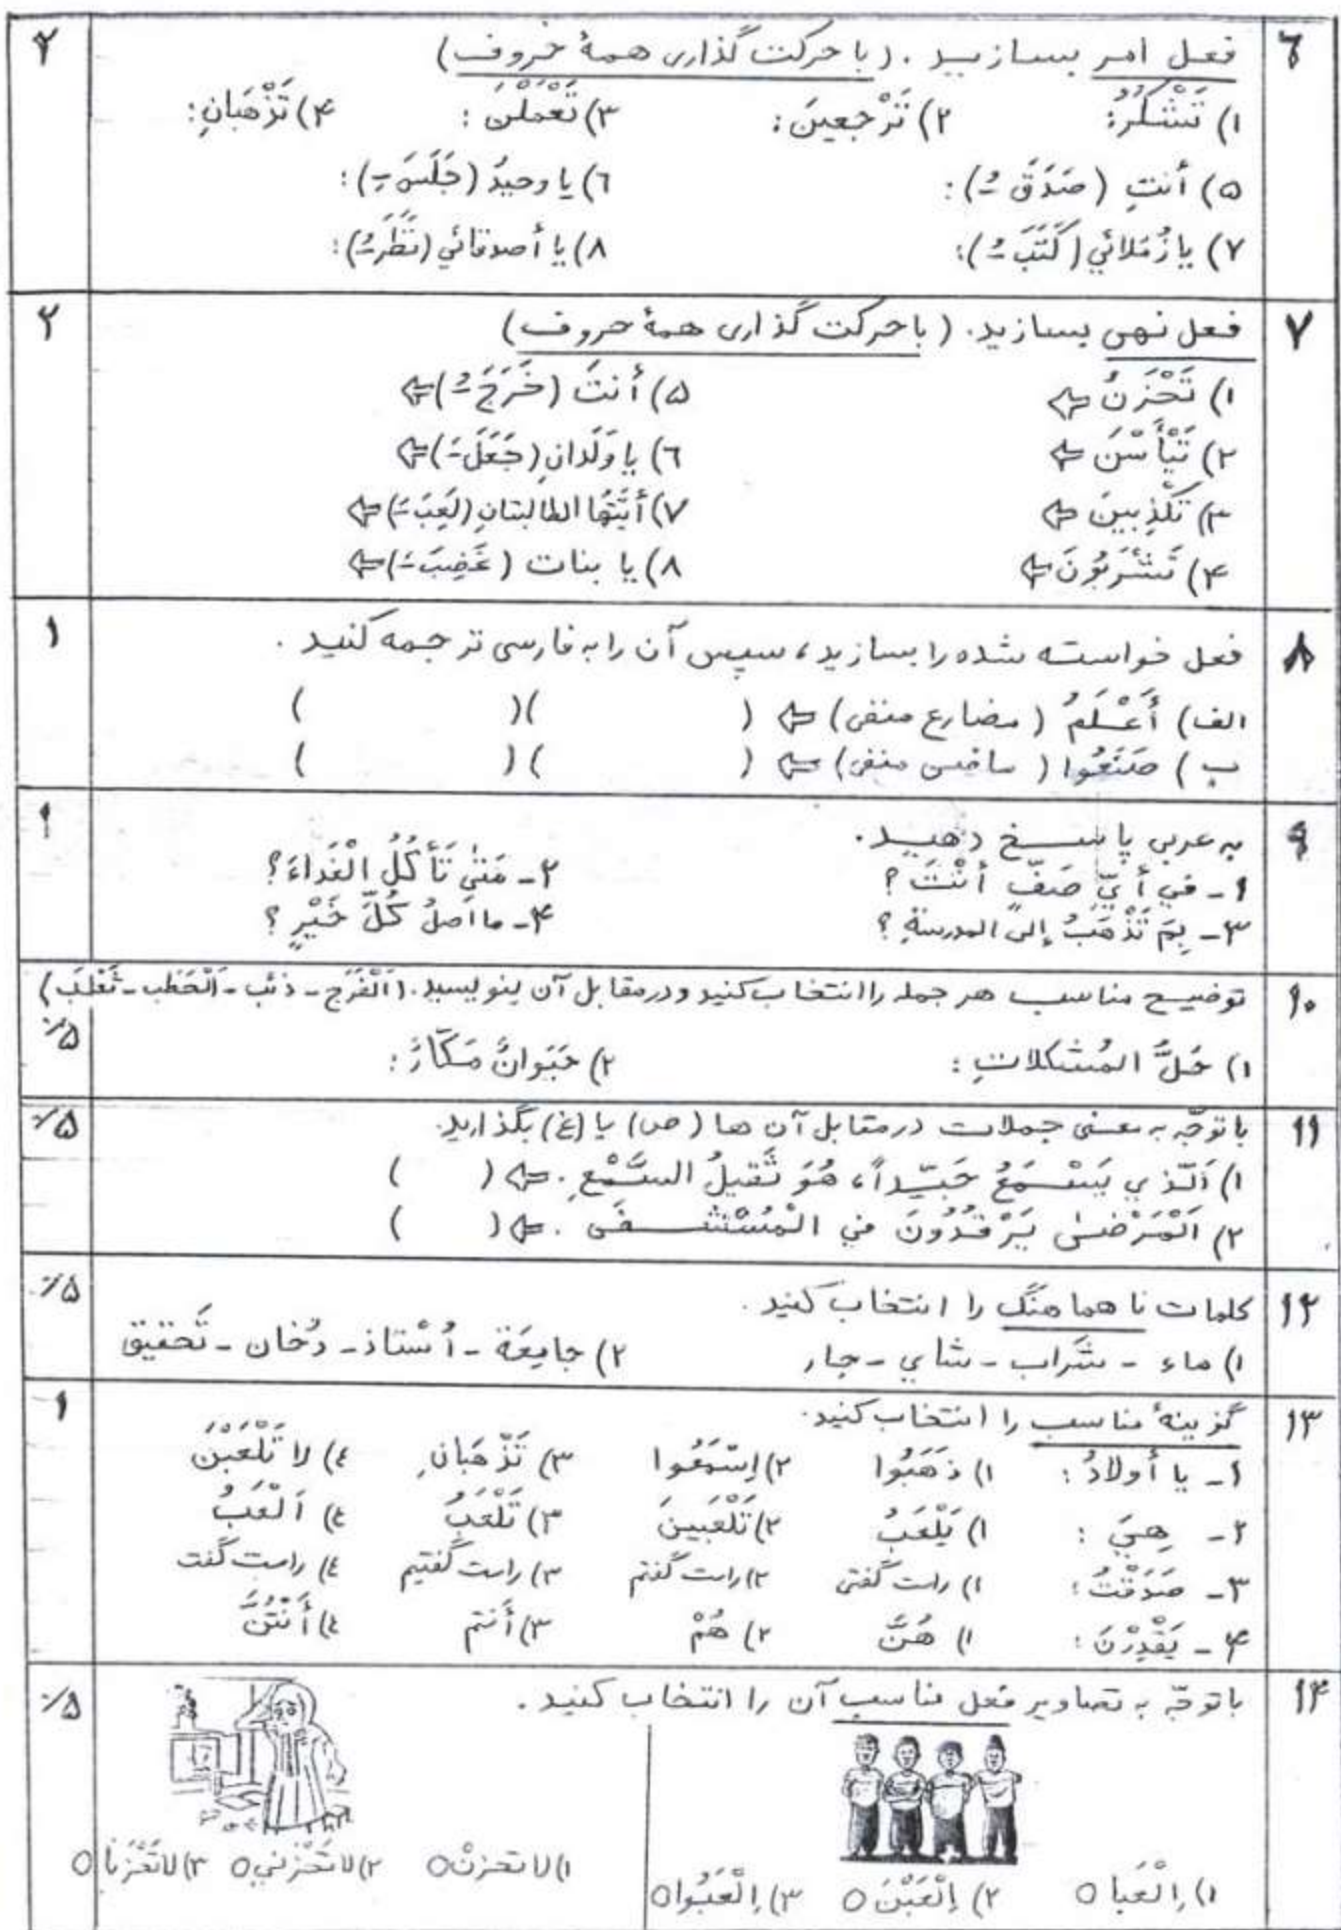 ۶ فعل امر بسازید. (با حرکت گذاری همهٔ حروف) ۲
۱) تَشْكُرُ: ۲) تَرْجِعينَ: ۳) تَعْمَلْنَ: ۴) تَذْهَبانِ:
۵) أنتِ (صَدَقَ ـُ): ۶) يا وحيدُ (جَلَسَ ـِ):
۷) يا زُمَلائي (كَتَبَ ـُ): ۸) يا أصدقائي (نَظَرَ ـُ):
۷ فعل نهی بسازید. (با حرکت گذاری همهٔ حروف) ۲
۱) تَحْزَنُ ⇦ ۵) أنتَ (خَرَجَ ـُ) ⇦
۲) تَيْأَسْنَ ⇦ ۶) يا وَلَدانِ (جَعَلَ ـَ) ⇦
۳) تَكْذِبينَ ⇦ ۷) أيَّتُها الطالبتانِ (لَعِبَ ـَ) ⇦
۴) تَشْرَبُونَ ⇦ ۸) يا بنات (غَضِبَ ـَ) ⇦
۸ فعل خواسته شده را بسازید، سپس آن را به فارسی ترجمه کنید. ۱
الف) أَعْلَمُ (مضارع منفی) ⇦ ( )( )
ب) صَنَعُوا (ماضی منفی) ⇦ ( )( )
۹ به عربی پاسخ دهید. ۱
۱- في أيِّ صَفٍّ أنْتَ؟ ۲- مَتىٰ تَأكُلُ الْغَداءَ؟
۳- بِمَ تَذْهَبُ إلَى المدرسةِ؟ ۴- ما أصلُ كُلِّ خَيْرٍ؟
۱۰ توضیح مناسب هر جمله را انتخاب کنید و در مقابل آن بنویسید. (اَلْفَرَج - ذئب - اَلْحَطَب - ثَعْلَب)
۱) حَلُّ المُشكلاتِ: ۲) حَيَوانٌ مَكّارٌ: ٪۵
۱۱ با توجّه به معنی جملات در مقابل آن ها (ص) یا (غ) بگذارید. ٪۵
۱) اَلَّذي يَسْمَعُ جَيِّداً، هُوَ ثَقيلُ السَّمْعِ. ⇦ ( )
۲) اَلْمَرْضىٰ يَرْقُدُونَ في الْمُسْتشفَى. ⇦ ( )
۱۲ کلمات نا هماهنگ را انتخاب کنید. ٪۵
۱) ماء - شَراب - شاي - جار ۲) جامِعَة - اُسْتاذ - دُخان - تَحقیق
۱۳ گزینهٔ مناسب را انتخاب کنید. ۱
۱- يا أولادُ: ۱) ذَهَبُوا ۲) اِسْمَعُوا ۳) تَذْهَبانِ ٤) لا تَلْعَبْنَ
۲- هِيَ: ۱) يَلْعَبُ ۲) تَلْعَبينَ ۳) تَلْعَبُ ٤) اَلْعَبُ
۳- صَدَقْتُ: ۱) راست گفتی ۲) راست گفتم ۳) راست گفتیم ٤) راست گفت
۴- يَقْدِرْنَ: ۱) هُنَّ ۲) هُمْ ۳) أَنتم ٤) أَنْتُنَّ
۱۴ با توجّه به تصاویر فعل مناسب آن را انتخاب کنید. ٪۵
۱) اِلْعَبا ۲) اِلْعَبْنَ ۳) اِلْعَبُوا
۱) لا تحزنْ ۲) لا تَحْزَني ۳) لا تَحْزَنا